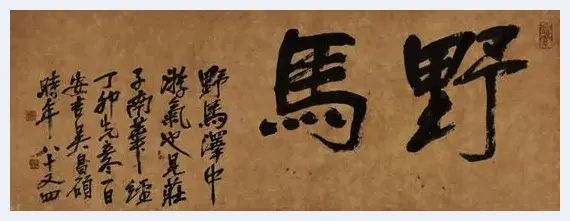 野馬
野馬澤中
游氣也見莊
子南華經
丁卯先春一日
安吉吳昌碩
時年八十又四